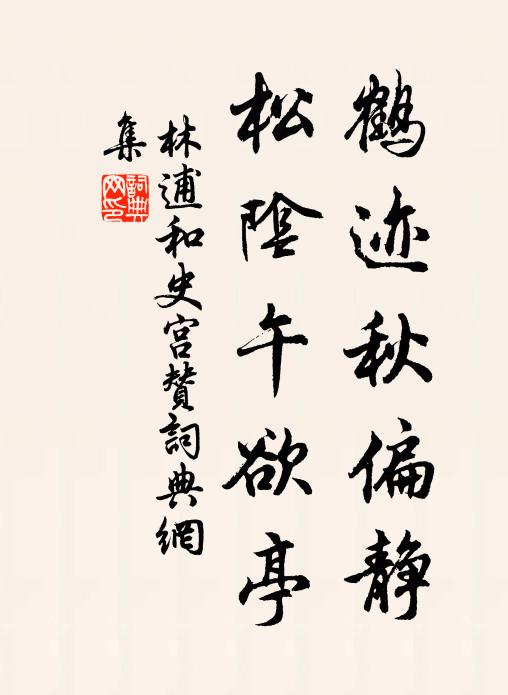 鶴迹秋偏静
松陰午欲亭
林逋和史宫赞詞典網
集
詞典
网印